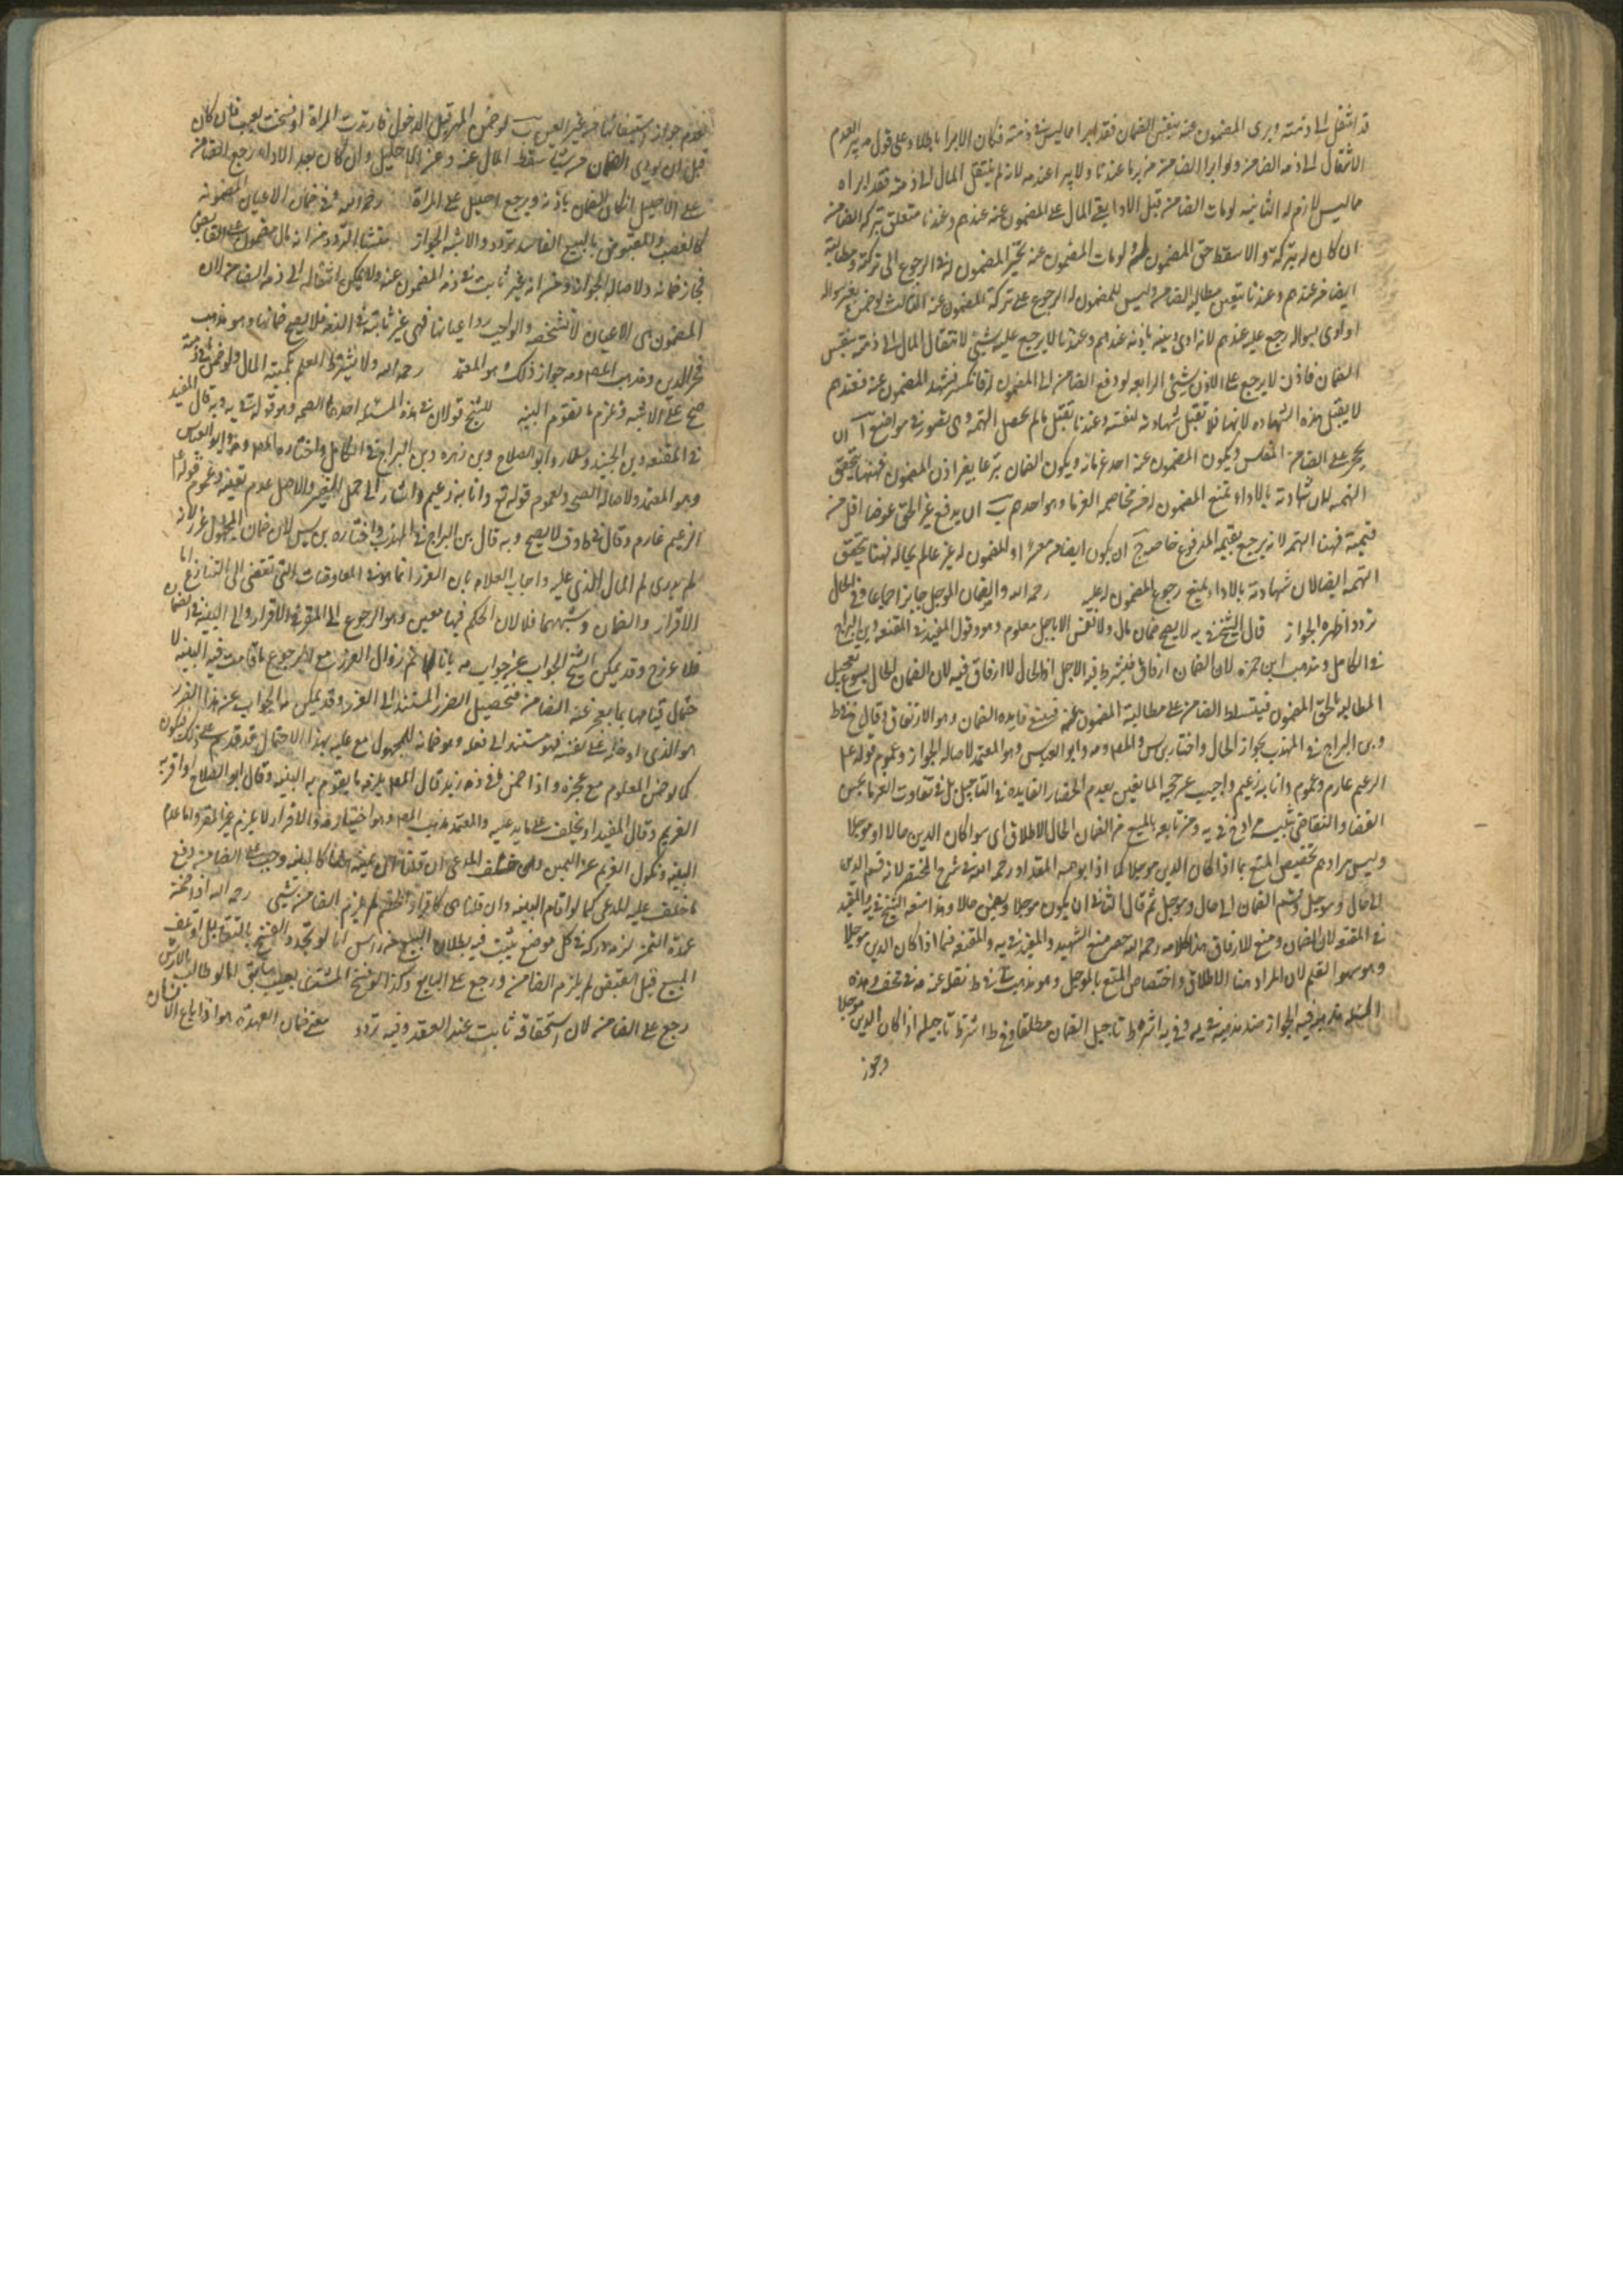 قد انتقل الى ذمته وبرى المضمون عنه بنفس الضمان فقد ابرا ما ليس في ذمته فكان الابرا باطلا وعلى قولهم بعدم
الانتقال الى ذمه الضامن ولو ابرا الضامن برئا عندنا ولا يبرا عندهم لانه لم ينتقل المال الى ذمته فقد ابراه
ما ليس لازم له الثانيه لو مات الضامن قبل الادا بقي المال على المضمون عنه عندهم وعندنا متعلق بتركه الضامن
ان كان له تركة والا سقط حق المضمون له ولو مات المضمون عنه تخير المضمون له في الرجوع الى تركته ومطالبة
الضامن عندهم وعندنا يتعين مطالبه الضامن وليس للمضمون له الرجوع على تركة المضمون عنه الثالث لو ضمن بغير سواله
او ادى بسواله رجع عليه عندهم لانه ادى دينه باذنه عندهم وعندنا لا يرجع عليه بشيئ لانتقال المال الى ذمته بنفس
الضمان فاذن لا يرجع على الاذن بشيئ الرابعه لو دفع الضامن الى المضمون له فانكر فشهد المضمون عنه فعندهم
لا يقبل هذه الشهاده لانها فلا تقبل شهادته لنفسه وعندنا تقبل ما لم يحصل التهمه وهي تتصور في مواضع آ ان
يحجر على الضامن المفلس ويكون المضمون عنه احد غرمائه ويكون الضمان تبرعا بغير اذن المضمون فهنا يتحقق
التهمه لان شهادته بالاداء تمنع المضمون له من مخاصمه الغرما وهو احدهم ب ان يدفع غير الحق عوضا اقل من
قيمته فهنا التهمه لانه يرجع بقيمه المدفوع خاصه ج ان يكون الضامن معسرا والمضمون له غير عالم بحاله فهنا يتحقق
التهمه ايضا لان شهادته بالاداء يمنع رجوع المضمون له عليه رحمه الله والضمان الموجل جايز اجماعا وفي الحال
تردد اظهره الجواز قال الشيخ في يه لا يصح ضمان مال ولا نفس الا باجل معلوم وهو قول المفيد في المقنعه وبن البراج
في الكامل ومذهب ابن حمزه لان الضمان ارفاق فيشترط فيه الاجل اذ الحال لا ارفاق فيه لان الضمان الحال يسوغ تعجيل
المطالبه لحق المضمون فيتسلط الضامن على مطالبة المضمون عنه فينتفي فايده الضمان وهو الارتفاق وقال في ط
وبن البراج في المهذب بجواز الحال واختاره بن س والمص ومه وابو العباس وهو المعتمد لاصاله الجواز وعموم قوله ع م
الزعيم غارم وعموم وانا به زعيم واجيب عن حجه المانعين بعدم انحصار الفايده في التاجيل بل في تفاوت الغرما بحسن
القضا والتقاضي تنبيه مراد الشيخ في يه ومن تابعه بالمنع من الضمان الحال الاطلاق اي سوا كان الدين حالا او موجلا
وليس مرادهم تخصيص المنع بما اذا كان الدين موجلا كما اذا ابو عبد الله المقداد رحمه الله في شرح المختصر لانه قسم الدين
الى حال وموجل وقسم الضمان الى حال وموجل ثم قال الثاني ان يكون موجلا ويضمن حالا وهذا منعه الشيخ في يه والمفيد
في المقنعه لان الضمان وضع للارفاق هذا كلامه رحمه الله حصر منع الشهيد والمفيد في يه والمقنعه فيما اذا كان الدين موجلا
وهو سهو القلم لان المراد هنا الاطلاق واختصاص المنع بالموجل وهو مذهب الشيخ في ط نقله عنه مه في مختلف وهذه
المسله مذهبه فيه الجواز ضد مذهبه في يه وفي يه اشترط تاجيل الضمان مطلقا وفي ط اشترط تاجيله اذا كان الدين موجلا
وجوز
لعدم جواز استيفائها من غير العين ب لو ضمن المهر قبل الدخول فارتدت المراة او فسخت لعيب فان كان
قبل ان يودي الضامن شيئا سقط المال عنه وعن الاصيل وان كان بعد الاداء رجع الضامن
على الاصيل ان كان الضمان باذنه ويرجع الاصيل على المراة رحمه الله وفي ضمان الاعيان المضمونه
كالغصب والمقبوض بالبيع الفاسد تردد والاشبه الجواز منشا التردد من انه مال مضمون على القابض
فجاز ضمانه ولاصاله الجواز ومن انه غير ثابت في ذمه المضمون عنه ولا يمكن انتقاله الى ذمه الضامن لان
المضمون هي الاعيان لا شخصه والواجب رد اعيانها فهي غير ثابته في الذمه فلا يصح ضمانها وهو مذهب
فخر الدين ومذهب المص ومه جواز ذلك وهو المعتمد رحمه الله ولا يشترط العلم بكميه المال ولو ضمن ما في ذمته
صح على الاشبه ويلزم ما تقوم البينه للشيخ قولان في هذه المسئله احدهما الصحه وهو قوله في يه وبه قال المفيد
في المقنعه وبن الجنيد وسلار وابو الصلاح وبن زهره وبن البراج في الكامل واختاره المص ومه وابو العباس
وهو المعتمد لاصاله الصحه ولعموم قوله تع وانا به زعيم واشار الى حمل البعير والاصل عدم تعيينه وعموم قوله ع
الزعيم غارم وقال في ط وف لا يصح وبه قال بن البراج في المهذب واختاره بن س لان ضمان المجهول غرر لانه
لم يدري كم المال الذي عليه واجاب العلامه بان الغرر انما هو في المعاوضات التي تفضي الى التنازع اما
الاقرار والضمان وشبههما فلا لان الحكم فيها معين وهو الرجوع الى المقر في الاقرار والى البينه في الضمان
فلا غرر وقد يمكن الشيخ الجواب عن جواب مه بانا لا نم زوال الغرر مع الرجوع ما قامت فيه البينه لا
حتمال قيامها بما يعجز عنه الضامن فيحصل الضرر المستند الى الغرر وقد يمكن الجواب عن هذا الغرر
هو الذي ادخله على نفسه فهو مستند الى فعله وهو ضمانه للمجهول مع عليه بهذا الاحتمال فقد قدم على ذلك فيكون
كما لو ضمن المعلوم مع عجزه واذا ضمن ما في ذمه زيد قال المص يلزمه ما يقوم به البينه وقال ابو الصلاح او اقر به
الغريم وقال المفيد او يحلف على ما يدعيه والمعتمد مذهب المص وهو اختيار مه والاقرار لا يلزم غير المقر واما عدم
البينه ونكول الغريم عن اليمين وحلف المدعي ان قلنا ان يمينه كالبينه وجب على الضامن دفع
ما حلف عليه المدعي كما لو اقام البينه وان قلنا هي كاقرار الخصم لم يلزم الضامن شيئ رحمه الله اذا ضمن
عهدة الثمن لزمه دركه في كل موضع يثبت فيه بطلان البيع من راس اما لو تجدد الفسخ بالتقايل او تلف
المبيع قبل القبض لم يلزم الضامن ورجع على البايع وكذا لو فسخ المشتري بعيب سابق اما لو طالب بالارش
رجع على الضامن لان استحقاقه ثابت عند العقد وفيه تردد معنى ضمان العهدة هو اذا باع الانسان